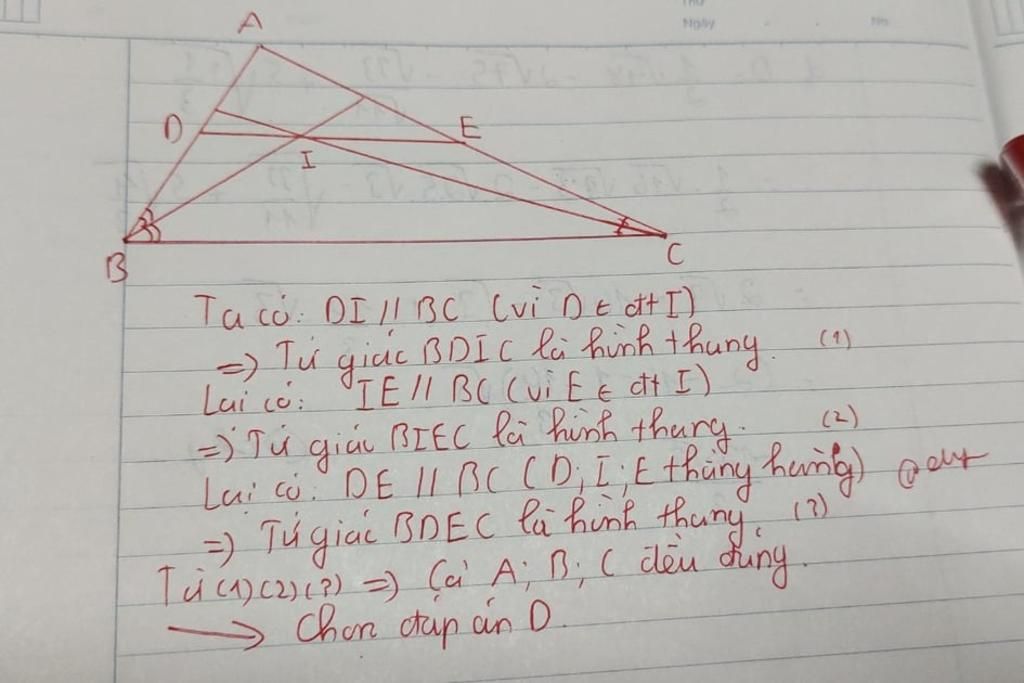 Thứ
Ngày No
A
D
E
I
B
C
Ta có: DI // BC (vì D ∈ đt I)
=> Tứ giác BDIC là hình thang. (1)
Lại có: IE // BC (vì E ∈ đt I)
=> Tứ giác BIEC là hình thang. (2)
Lại có: DE // BC (D; I; E thẳng hàng)
=> Tứ giác BDEC là hình thang. (3)
Từ (1)(2)(3) => Cả A; B; C đều đúng.
→ Chọn đáp án D.